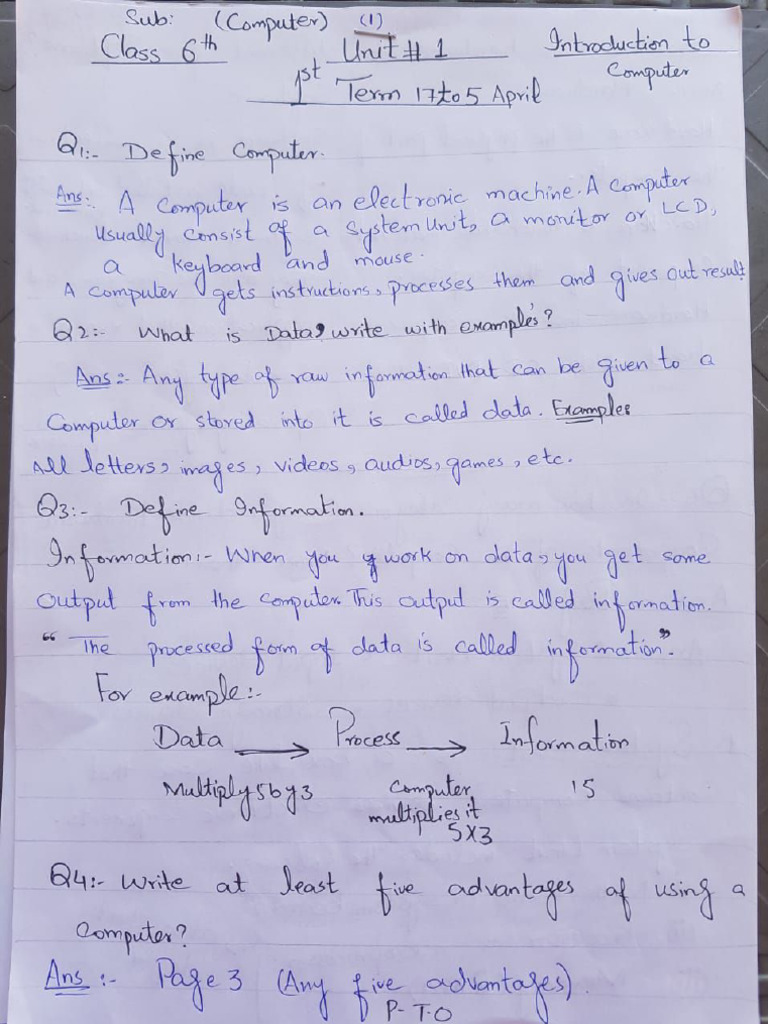 Sub: (Computer) (1)
Class 6th Unit # 1 Introduction to Computer
1st Term 17 to 5 April
Q1:- Define Computer.
Ans:- A computer is an electronic machine. A computer
usually consist of a system unit, a monitor or LCD,
a keyboard and mouse.
A computer gets instructions, processes them and gives out result
Q2:- What is Data, write with examples?
Ans:- Any type of raw information that can be given to a
computer or stored into it is called data. Examples
All letters, images, videos, audios, games, etc.
Q3:- Define Information.
Information:- When you work on data, you get some
output from the computer. This output is called information.
“The processed form of data is called information.”
For example:-
Data → Process → Information
Multiply 5 by 3 Computer 15
multiplies it
5X3
Q4:- Write at least five advantages of using a
computer?
Ans:- Page 3 (Any five advantages).
P-T-O